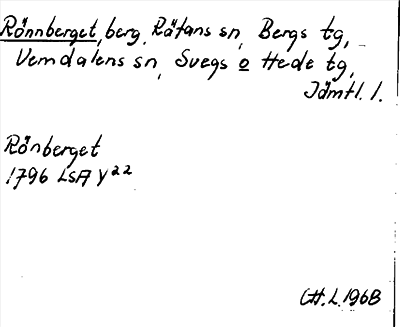 Rönnberget, berg, Rätans sn, Bergs tg,
Vemdalens sn, Svegs o Hede tg,
Jämtl. l.
Rönberget
1796 LSA Y22
C.H.L. 1968